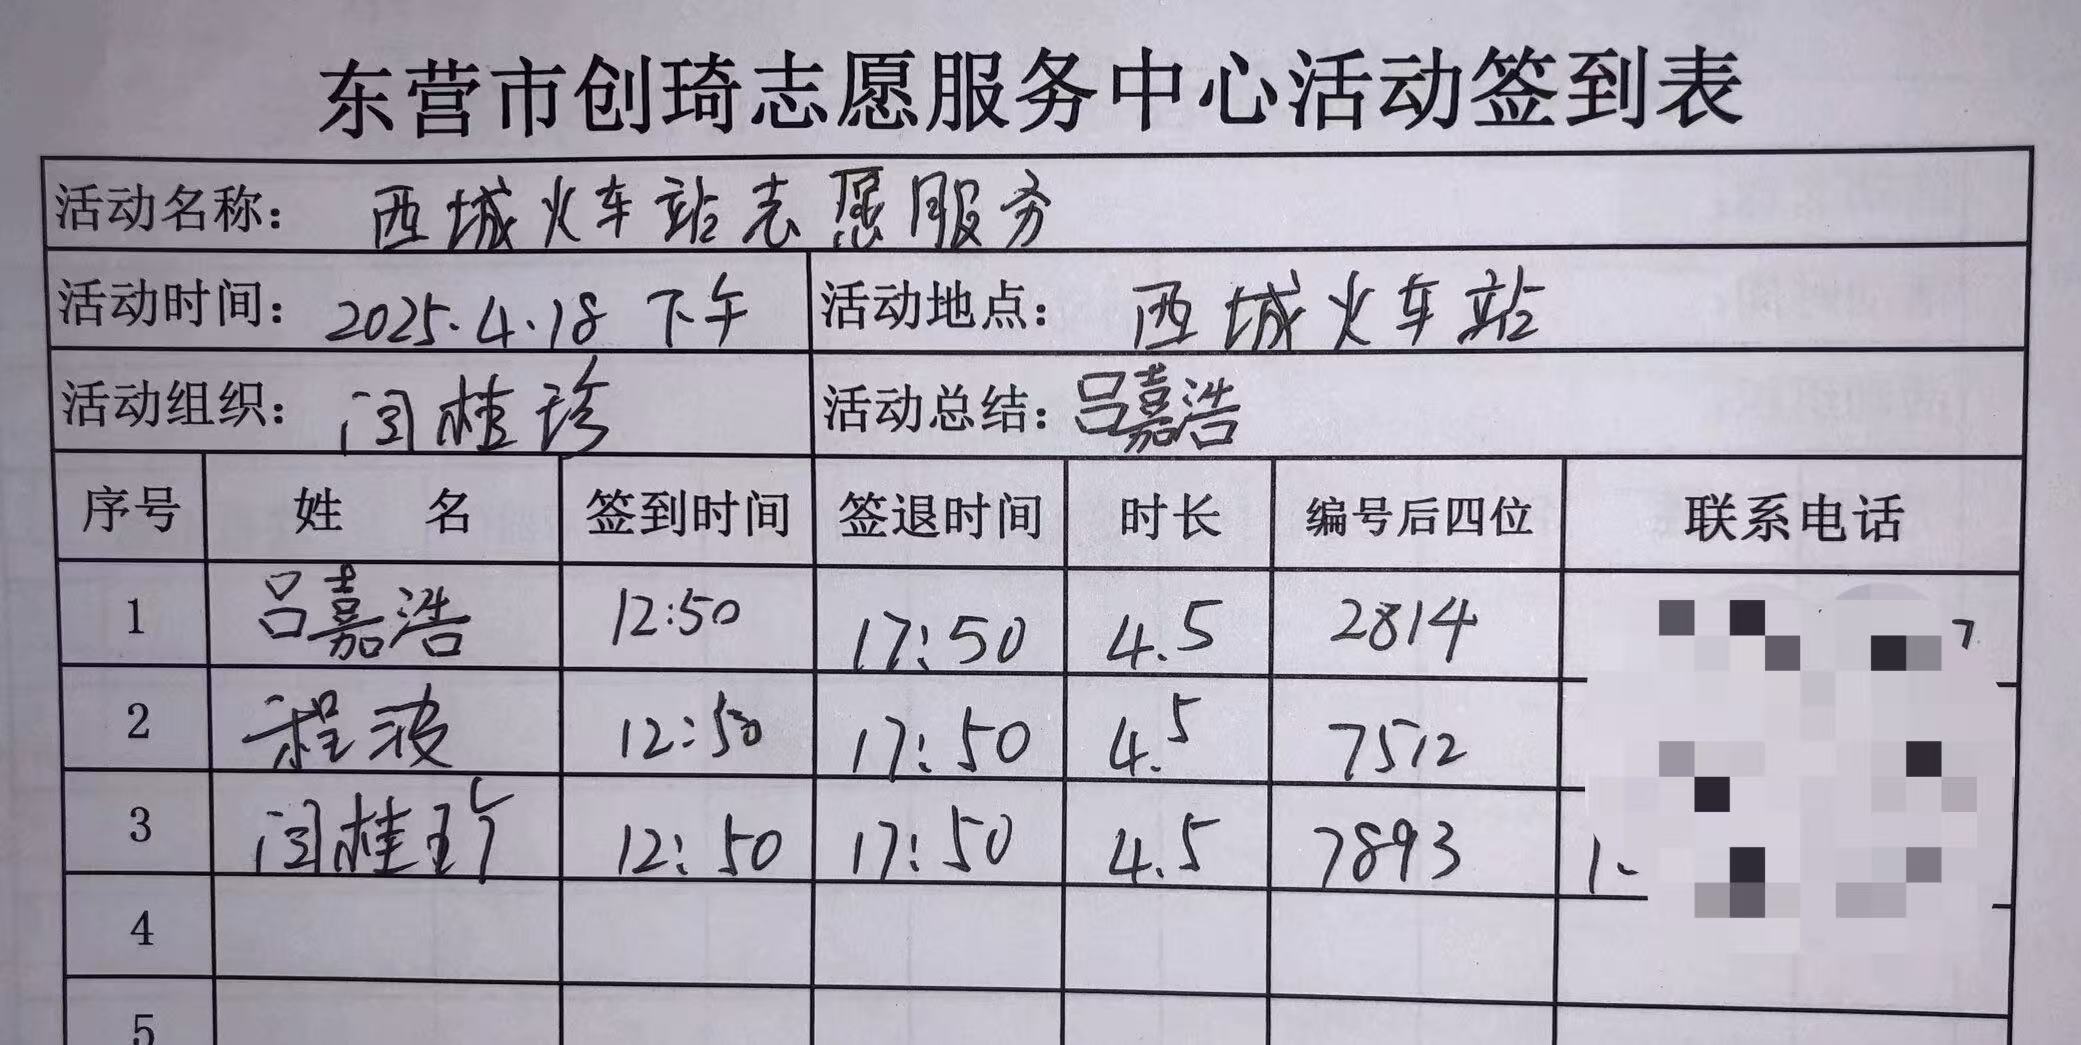 东营市创琦志愿服务中心活动签到表
活动名称： 西城火车站志愿服务
活动时间： 2025.4.18 下午 活动地点： 西城火车站
活动组织： 闫桂珍 活动总结： 吕嘉浩
序号 姓 名 签到时间 签退时间 时长 编号后四位 联系电话
1 吕嘉浩 12:50 17:50 4.5 2814 7
2 程波 12:50 17:50 4.5 7512
3 闫桂珍 12:50 17:50 4.5 7893 1
4
5